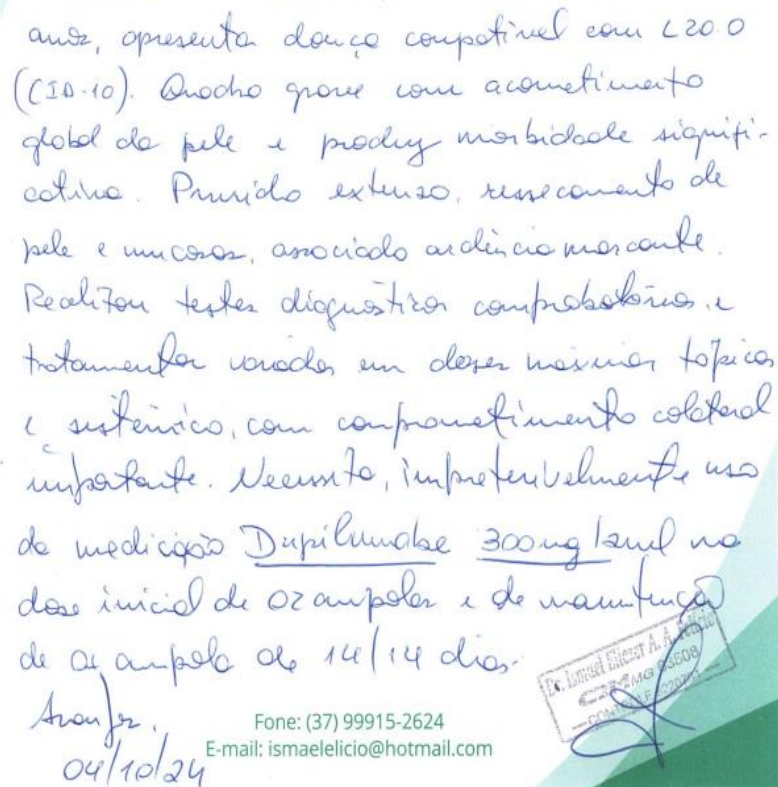 anos, apresenta doença compatível com L20.0
(CID-10). Quadro grave com acometimento
global da pele e produz morbidade signifi-
cativa. Prurido extenso, ressecamento de
pele e mucosas, associado ardência marcante.
Realizou testes diagnósticos comprobatórios e
tratamentos variados em doses máximas tópicos
e sistêmico, com comprometimento colateral
importante. Necessita, impreterivelmente uso
da medicação Dupilumabe 300mg/2ml na
dose inicial de 02 ampolas e de manutenção
de 01 ampola de 14/14 dias.
Dr. Ismael Eliezer A. A.
CRMMG
Fone: (37) 99915-2624
E-mail: ismaelelicio@hotmail.com
04/10/24